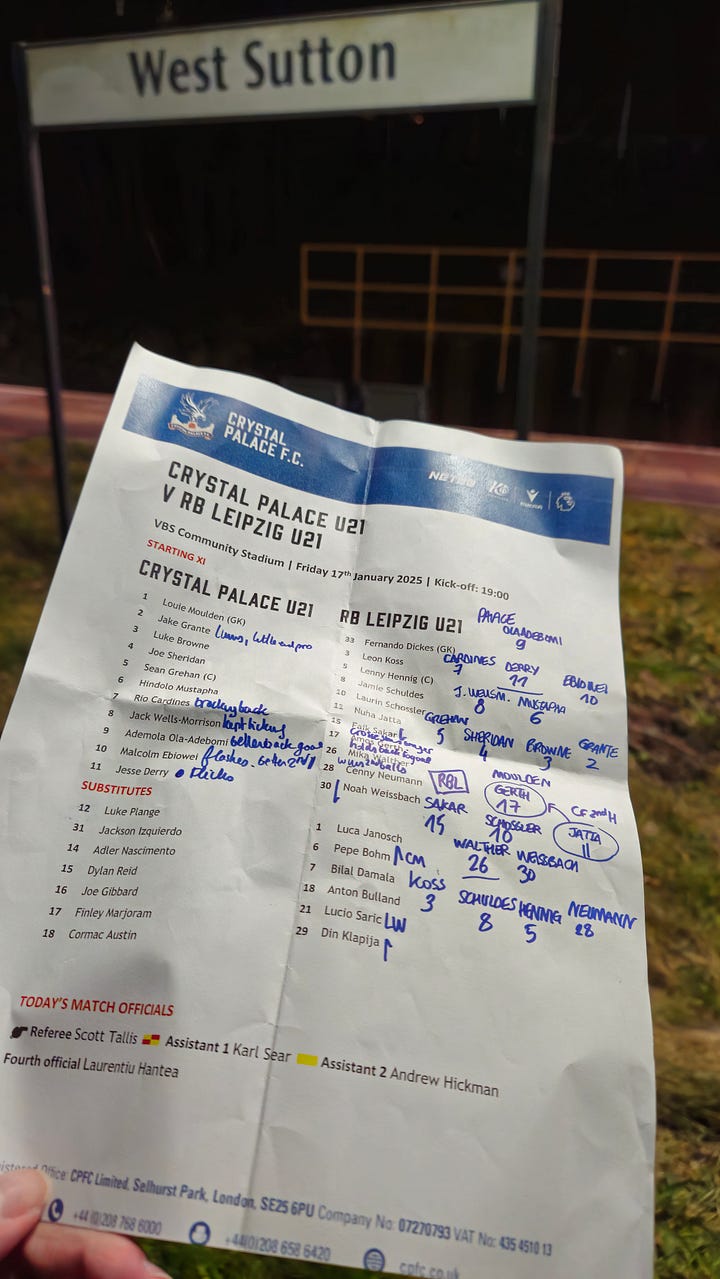 West Sutton
CRYSTAL
PALACE F.C.
CRYSTAL PALACE U21
V RB LEIPZIG U21
VBS Community Stadium | Friday 17th January 2025 | Kick-off: 19:00
STARTING XI
CRYSTAL PALACE U21
1 Louie Moulden (GK)
2 Jake Grante
3 Luke Browne
4 Joe Sheridan
5 Sean Grehan (C)
6 Hindolo Mustapha
7 Rio Cardines tracking back
8 Jack Wells-Morrison kept ticking
9 Ademola Ola-Adebomi
10 Malcolm Ebiowei flashes.
11 Jesse Derry flicks
SUBSTITUTES
12 Luke Plange
31 Jackson Izquierdo
14 Adler Nascimento
15 Dylan Reid
16 Joe Gibbard
17 Finley Marjoram
18 Cormac Austin
RB LEIPZIG U21
33 Fernando Dickes (GK)
3 Leon Koss
5 Lenny Hennig (C)
8 Jamie Schuldes
10 Laurin Schossler
11 Nuha Jatta
15 Faik Sakar
17 Amon Gerth
26 Mika Walther
28 Cenny Neumann
30 Noah Weissbach
1 Luca Janosch
6 Pepe Bohm CM
7 Bilal Damala
18 Anton Bulland
21 Lucio Saric LW
29 Din Klapija
PALACE
OLAADEBOMI
9
CARDINES DERRY EBIOWEI
7 11 10
J. WELLSM. MUSTAPHA
8 6
GREHAN SHERIDAN BROWNE GRANTE
5 4 3 2
MOULDEN
RBL
GERTH F CF 2nd H
17
SAKAR SCHOSSLER JATTA
15 10 11
WALTHER WEISSBACH
26 30
KOSS SCHULDES HENNIG NEUMANN
3 8 5 28
TODAY'S MATCH OFFICIALS
Referee Scott Tallis Assistant 1 Karl Sear Assistant 2 Andrew Hickman
Fourth official Laurentiu Hantea
Office: CPFC Limited, Selhurst Park, London, SE25 6PU Company No: 07270793 VAT No: 435 4510 13
+44 (0)208 768 6000 +44(0)208 658 6420 cpfc.co.uk